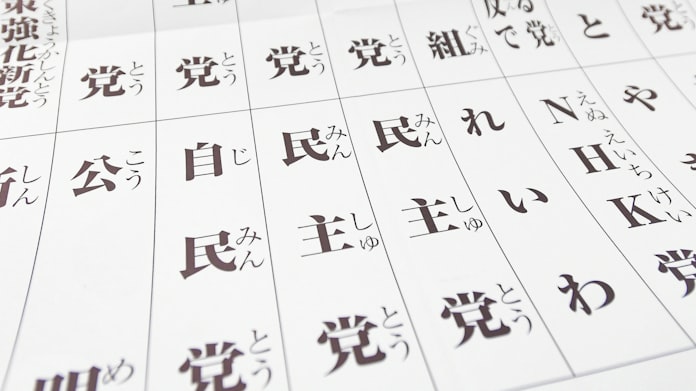 党 とう
と
で党
組 ぐみ
党 とう
党 とう
党 とう
党 とう
強化新党
や
NHK党 えぬ えいち けい
れいわ
民主党 みんしゅとう
民主党 みんしゅとう
自民党 じみんとう
公明 こうめ
しん